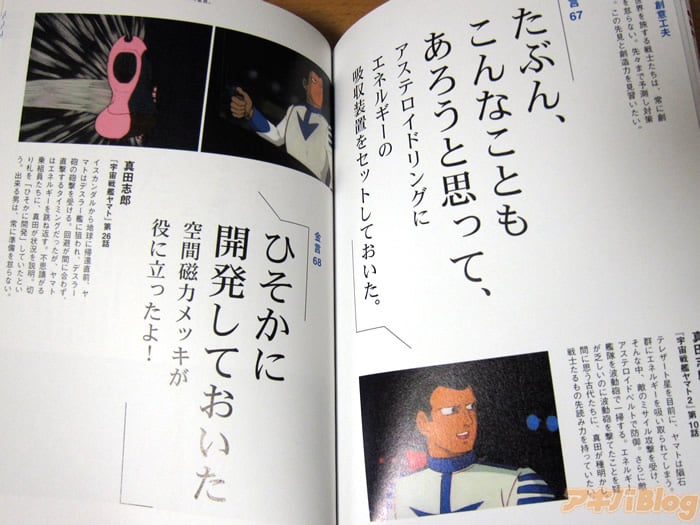 創意工夫
世界を旅する戦士たちは、常に創
を怠らない。先々まで予測し対策
す。この先見と創造力を見習いたい。
金言 67
たぶん、
こんなことも
あろうと思って、
アステロイドリングに
エネルギーの
吸収装置をセットしておいた。
「宇宙戦艦ヤマト2」第10話
テレザート星を目前に、ヤマトは隕石
群にエネルギーを吸い取られてしまう。
そんな中、敵のミサイル攻撃を受け、
アステロイドベルトで防御。さらに敵
艦隊を波動砲で一掃する。エネルギー
が乏しいのに波動砲を撃てたことを疑
問に思う古代たちに、真田が種明か
戦士たるもの先読み力を持っていた
金言 68
ひそかに
開発しておいた
空間磁力メッキが
役に立ったよ!
真田志郎
「宇宙戦艦ヤマト」第26話
イスカンダルから地球に帰還直前、ヤ
マトはデスラー艦に狙われ、デスラー
砲の砲撃を受ける。回避が間に合わず、
直撃するタイミングだったが、ヤマト
はエネルギーを跳ね返す。不思議がる
乗組員たちに、真田が状況を説明。切
り札を「ひそかに開発」していたとい
う。出来る男は、常に準備を怠らない。
アキバBlog